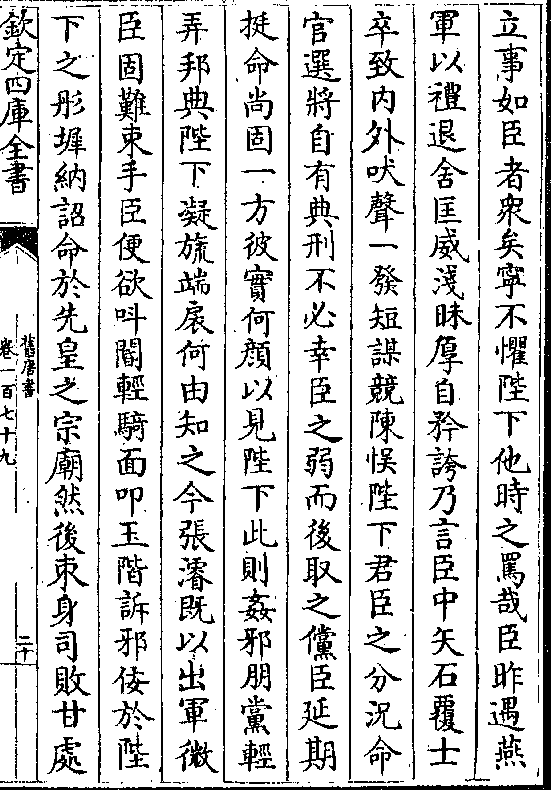 立事如臣者衆矣寧不懼陛下他時之罵哉臣昨遇燕
軍以禮退舍匡威淺昧厚自矜誇乃言臣中矢石覆士
卒致内外吠聲一發短謀競陳悮陛下君臣之分況命
官選將自有典刑不必幸臣之弱而後取之儻臣延期
挺命尚固一方彼實何顔以見陛下此則姦邪朋黨輕
弄邦典陛下凝旒端扆何由知之今張濬既以出軍微
臣固難束手臣便欲叫閽輕騎面叩玉階訴邪佞於陛
下之彤墀納詔命於先皇之宗廟然後束身司敗甘處
欽定四庫全書
舊唐書
卷一百七十九
二十